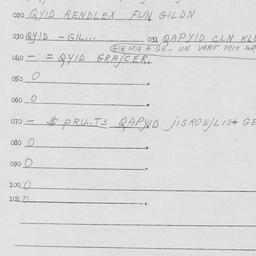 020 QYID RENDLEX FUN GILDN
030 QYID - GIL... 031 QAPYID CLN
GIB MIR A GR... UN VARF MIX AR
040 - = QYID GRAJCER.
050 0
060 0
070 - $ PRU..TS QAPYD
080 0
090 0
100 0
101 0